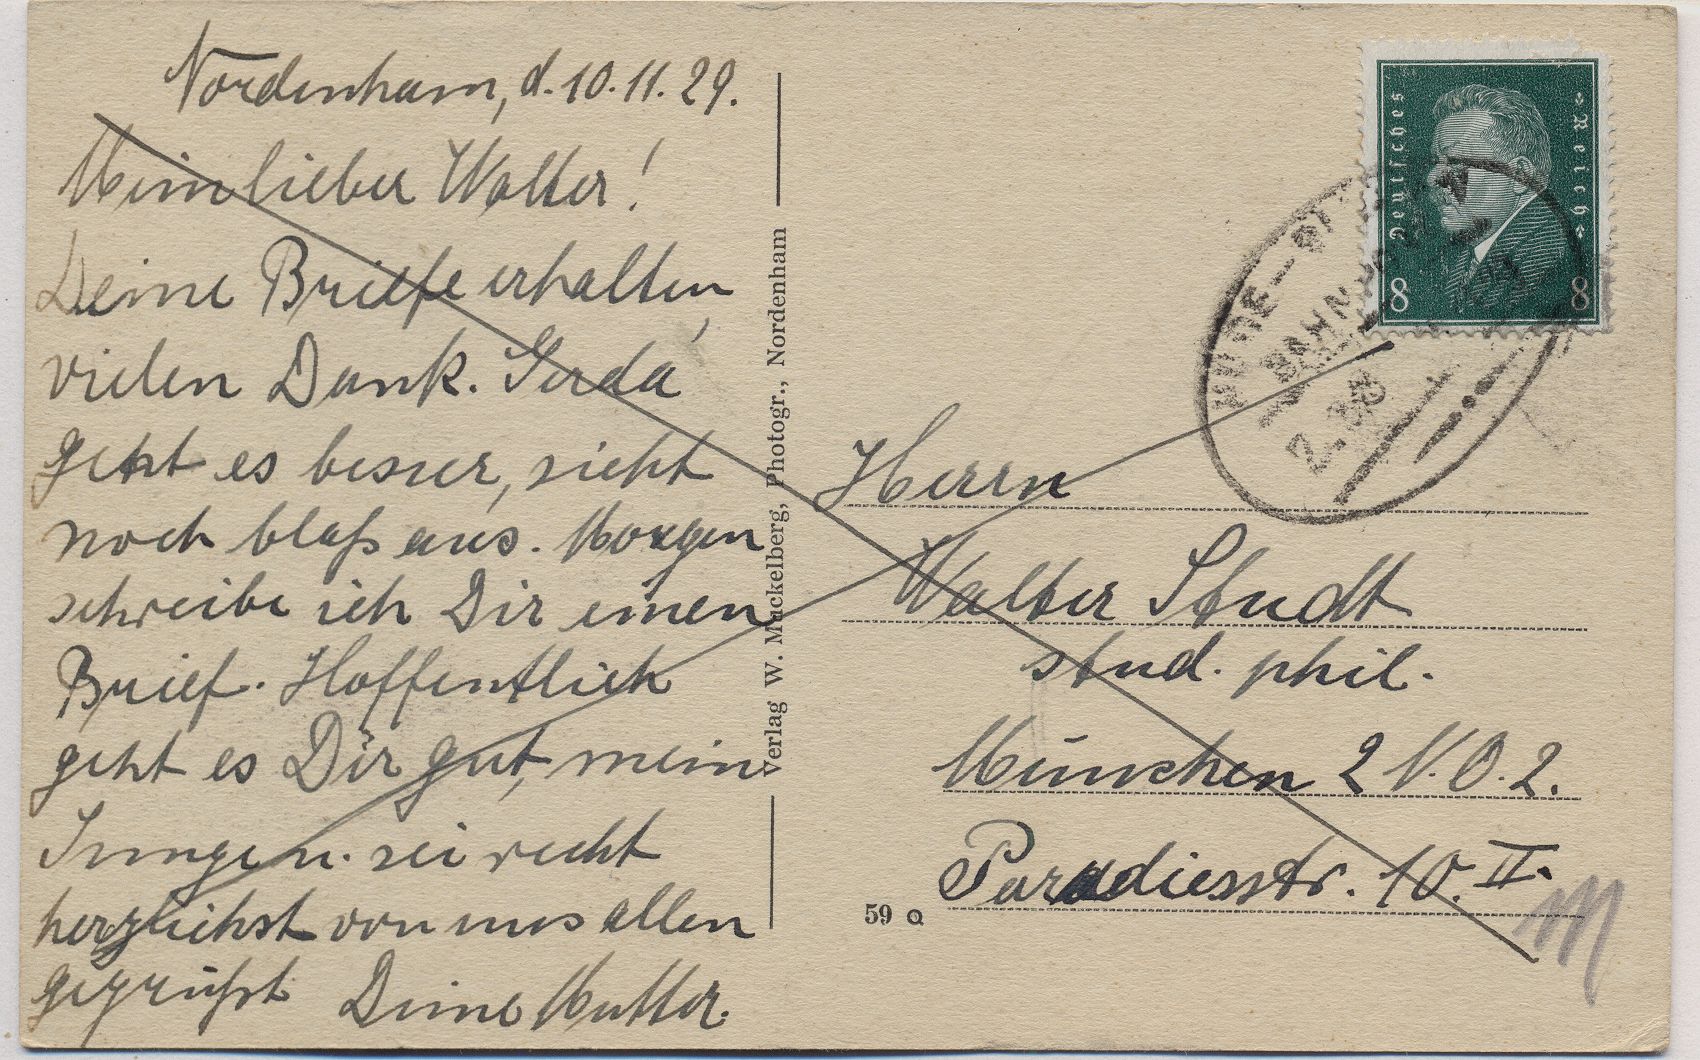 Nordenham, d. 10. 11. 29.
Mein lieber Walter!
Deine Briefe erhalten,
vielen Dank. Gerda
geht es besser, sieht
noch blaß aus. Morgen
schreibe ich Dir einen
Brief. Hoffentlich
geht es Dir gut, mein
Junge u. sei recht
herzlichst von uns allen
gegrüßt Deine Mutter.
Verlag W. Muckelberg, Photogr., Nordenham
Deutsches Reich
8 8
HUDE
BAHNPOST
Herrn
Walter Studt
stud. phil.
München 2 N.O. 2.
Paradiesstr. 10. II.
59
M